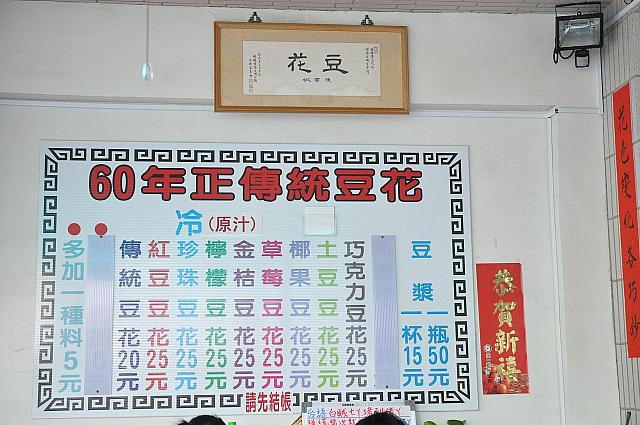 花豆
60年正傳統豆花
冷(原汁)
多加一種料5元
傳統豆花20元
紅豆豆花25元
珍珠豆花25元
檸檬豆花25元
金桔豆花25元
草莓豆花25元
椰果豆花25元
土豆豆花25元
巧克力豆花25元
豆漿
一杯15元
一瓶50元
請先結帳
恭賀新禧
花色變化